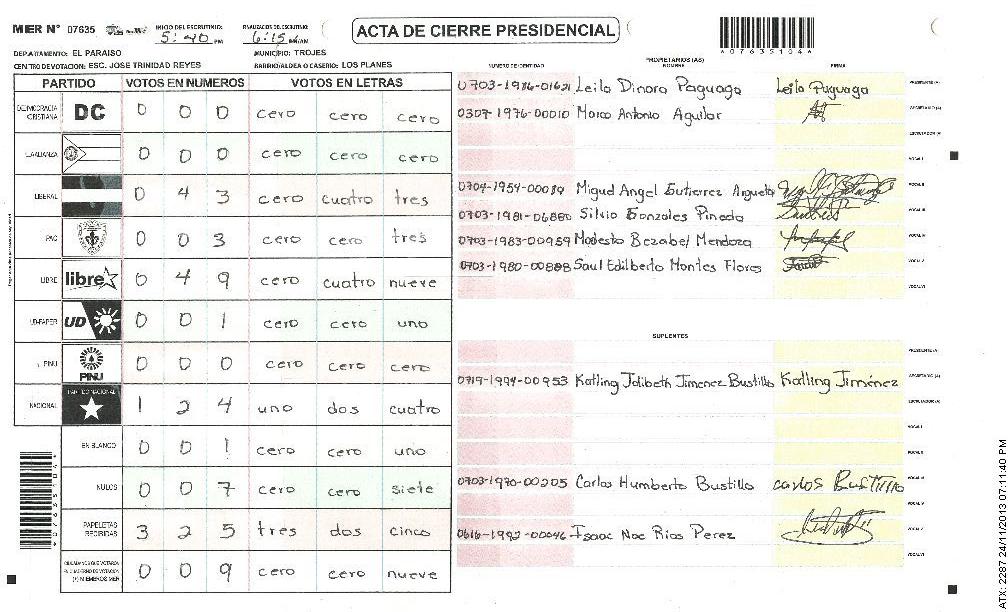 MER N° 07635
INICIO DEL ESCRUTINIO: 5:40 PM
FINALIZACION DEL ESCRUTINIO: 6:15 PM/AM
ACTA DE CIERRE PRESIDENCIAL
A07635104A
DEPARTAMENTO: EL PARAISO
MUNICIPIO: TROJES
CENTRO DE VOTACION: ESC. JOSE TRINIDAD REYES
BARRIO/ALDEA O CASERIO: LOS PLANES
PARTIDO VOTOS EN NUMEROS VOTOS EN LETRAS
DEMOCRACIA CRISTIANA DC 0 0 0 cero cero cero
LA ALIANZA 0 0 0 cero cero cero
LIBERAL 0 4 3 cero cuatro tres
PAC 0 0 3 cero cero tres
LIBRE libre 0 4 9 cero cuatro nueve
UD-FAPER UD 0 0 1 cero cero uno
PINU PINU 0 0 0 cero cero cero
NACIONAL PARTIDO NACIONAL 1 2 4 uno dos cuatro
EN BLANCO 0 0 1 cero cero uno
NULOS 0 0 7 cero cero siete
PAPELETAS RECIBIDAS 3 2 5 tres dos cinco
CIUDADANOS QUE VOTARON EN CUADERNO DE VOTACION (+) MIEMBROS MER 0 0 9 cero cero nueve
PROPIETARIOS (AS)
NUMERO DE IDENTIDAD NOMBRE FIRMA
Leila Dinora Paguaga Leila Paguaga PRESIDENTE (A)
0307-1976-00010 Marco Antonio Aguilar SECRETARIO (A)
ESCRUTADOR (A)
VOCAL I
0704-1954-00089 Miguel Angel Gutierrez Argueta VOCAL II
0703-1981-06880 Silvio Gonzales Pineda VOCAL III
0703-1983-00959 Modesto Bezabel Mendoza VOCAL IV
0703-1980-00888 Saul Edilberto Montes Flores VOCAL V
VOCAL VI
SUPLENTES
PRESIDENTE (A)
0719-1994-00953 Katling Jolibeth Jimenez Bustillo Katling Jiménez SECRETARIO (A)
ESCRUTADOR (A)
VOCAL I
VOCAL II
0703-1970-00205 Carlos Humberto Bustillo carlos Bustillo VOCAL III
VOCAL IV
0616-1992-00046 Isaac Noe Rios Perez VOCAL V
VOCAL VI
ATX: 2287 24/11/2013 07:11:40 PM